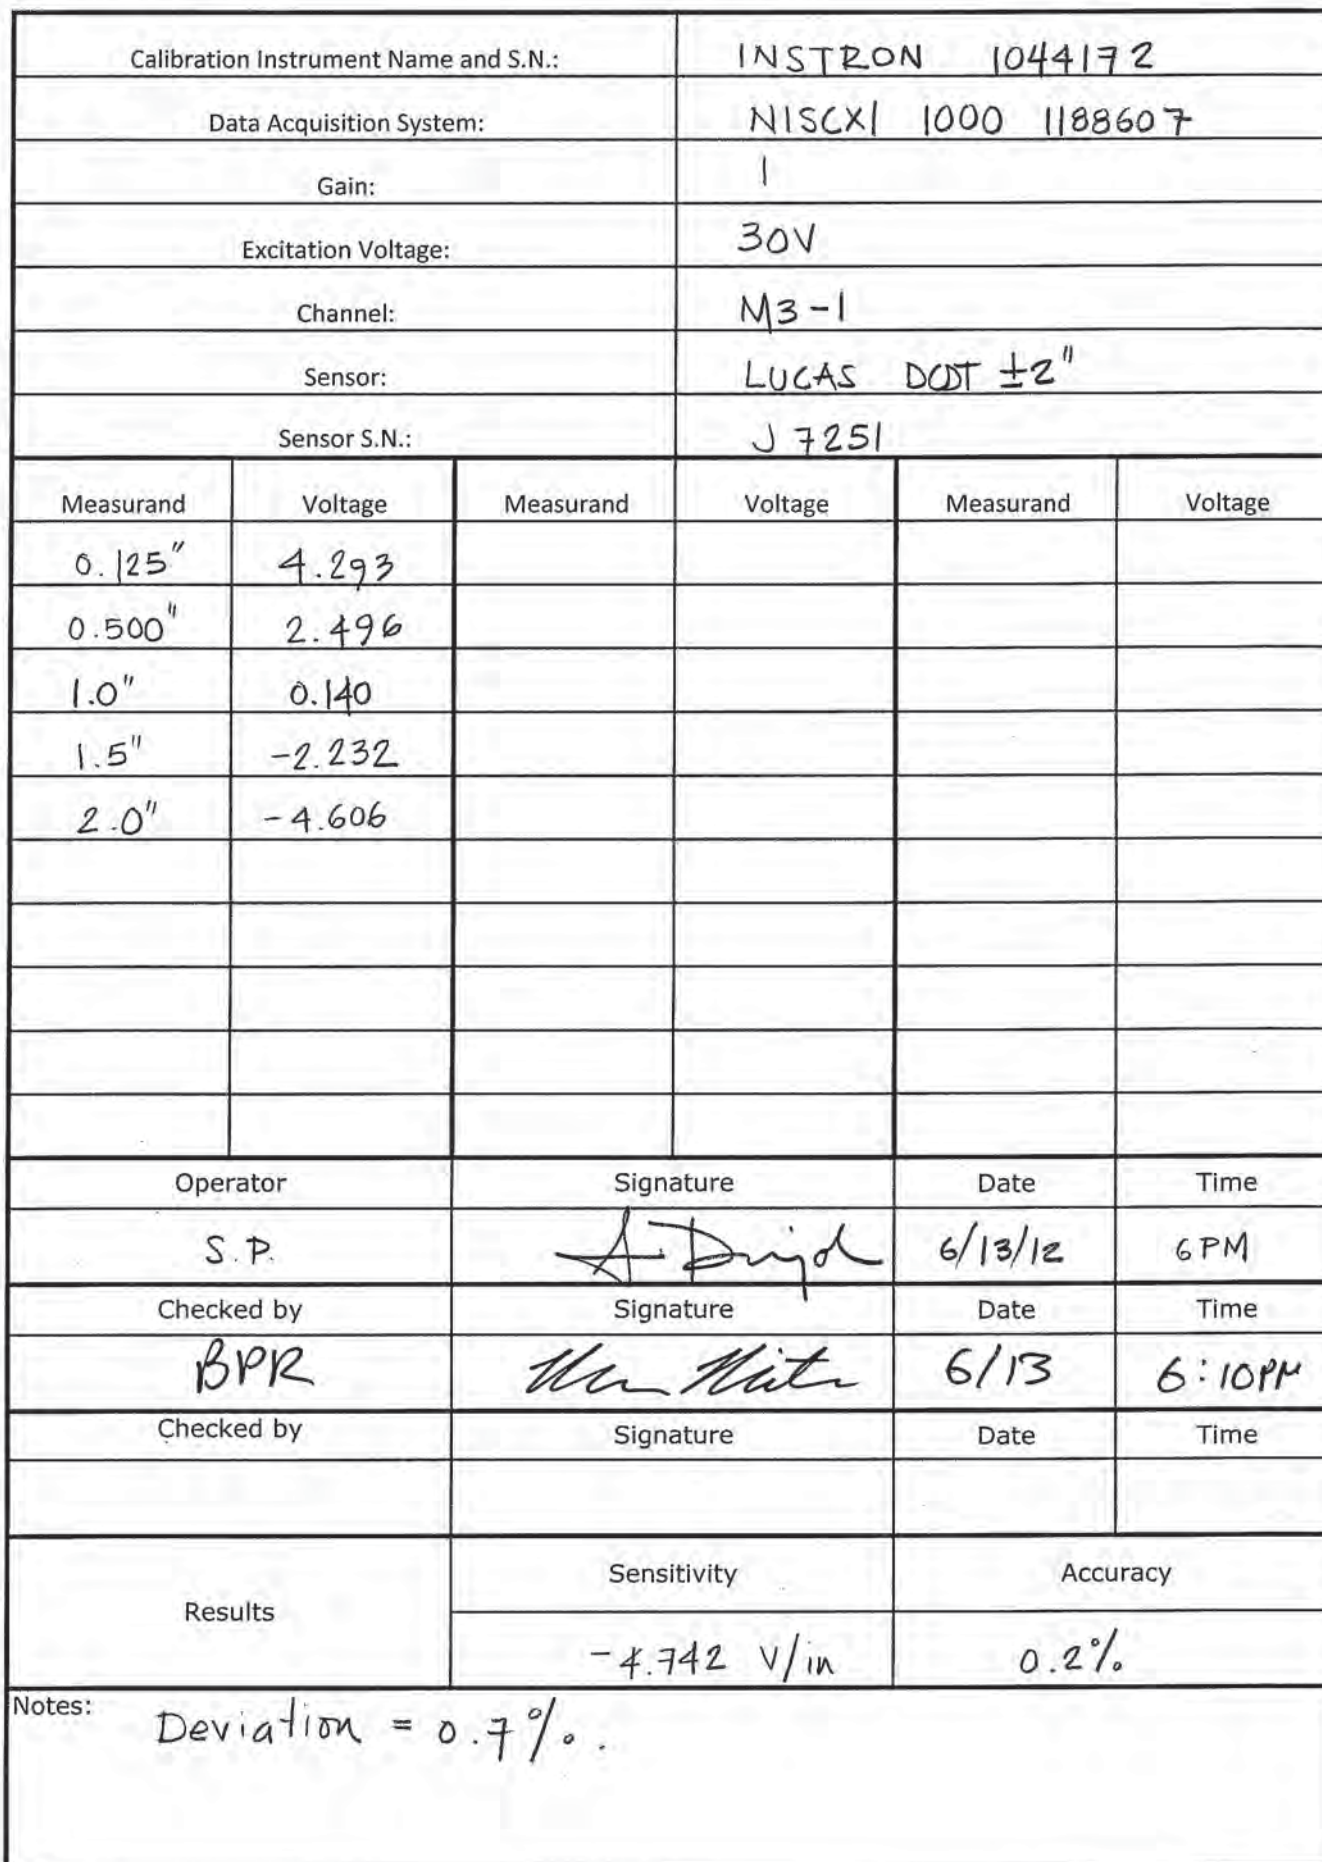 Calibration Instrument Name and S.N.: INSTRON 1044172
Data Acquisition System: NISCXI 1000 1188607
Gain: 1
Excitation Voltage: 30V
Channel: M3-1
Sensor: LUCAS DCDT ±2"
Sensor S.N.: J 7251
Measurand Voltage Measurand Voltage Measurand Voltage
0.125" 4.293
0.500" 2.496
1.0" 0.140
1.5" -2.232
2.0" -4.606
Operator Signature Date Time
S.P. 6/13/12 6PM
Checked by Signature Date Time
BPR 6/13 6:10PM
Checked by Signature Date Time
Results Sensitivity Accuracy
-4.742 V/in 0.2%
Notes: Deviation = 0.7%.